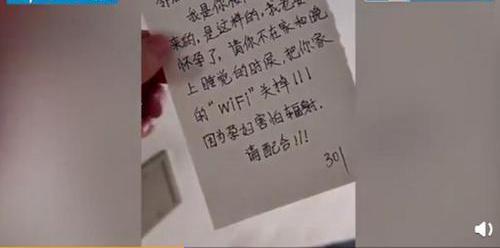 我是你
来的,是这样的,我老婆
怀孕了,请你不在家和晚
上睡觉的时候,把你家
的“WiFi”关掉!!!
因为孕妇害怕辐射.
请配合!!!
301